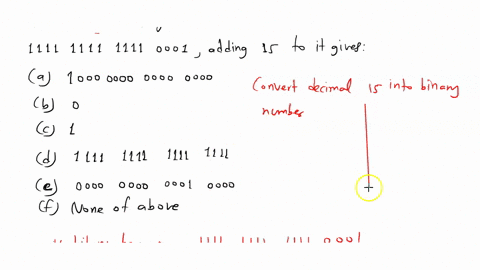 1111 1111 1111 0001, adding 15 to it gives:
(a) 1000 0000 0000 0000
(b) 0
(c) 1
(d) 1111 1111 1111 1111
(e) 0000 0000 0001 0000
(f) None of above
Convert decimal 15 into binary
number
1111 1111 1111 0001